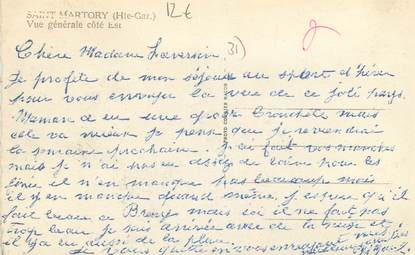 SAINT MARTORY (Hte-Gar.)
Vue générale côté Est
12 €
31)
Chère Madame
Je profite de mon séjour au sport d'hiver
pour vous envoyer la vue de ce joli pays.
Maman a eu une grosse bronchite mais
cela va mieux je pense que je reviendrai
la semaine prochaine. J'ai fait vos manches
mais je n'ai pas eu assez de laine pour les
il n'en manque pas beaucoup mais
il y en manque quand même, j'espère qu'il
fait beau à mais ici il ne fait pas
trop beau je suis arrivée avec de la neige et
il y a eu aussi de la pluie.
Je vous quitte en vous envoyant